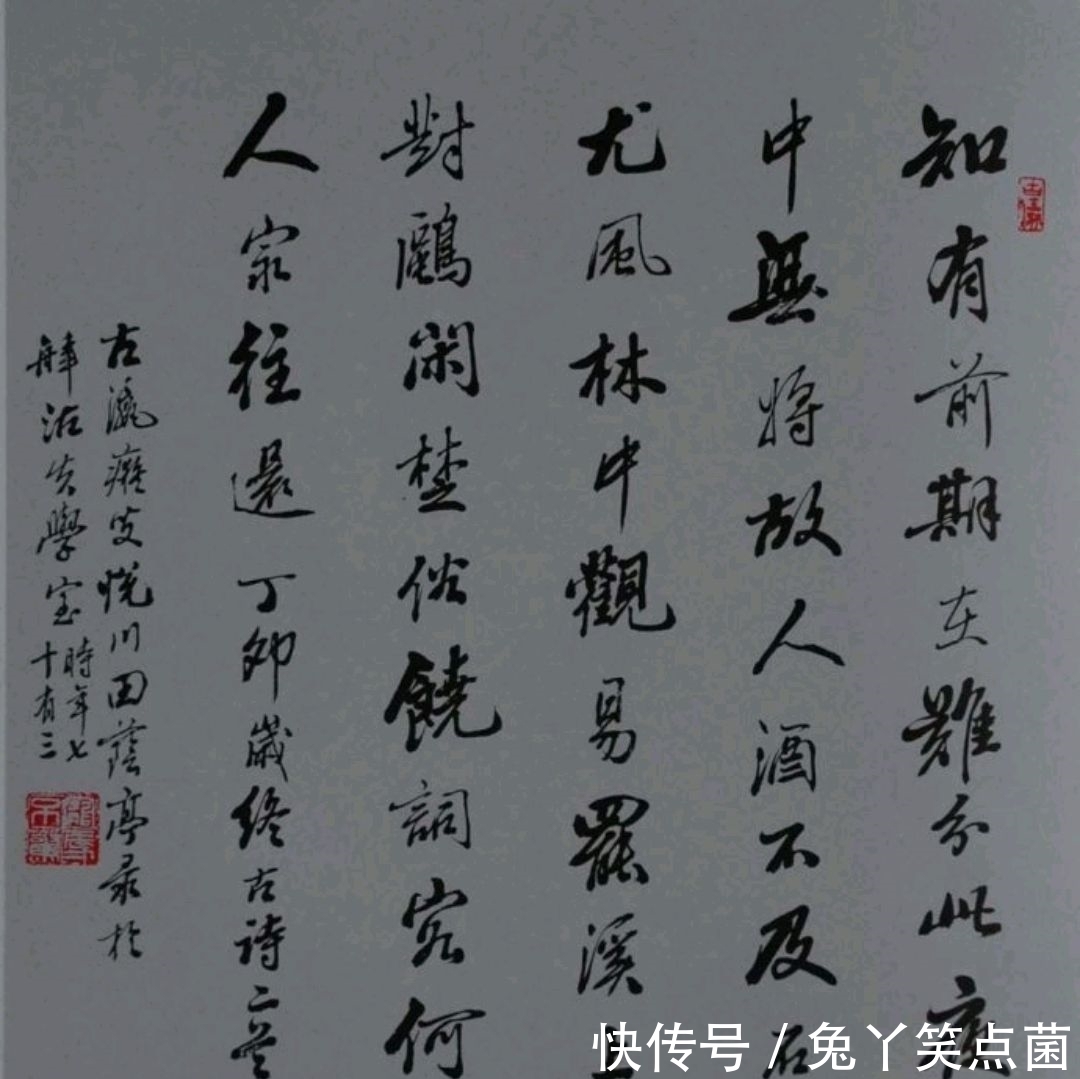 知有前期在難分此夜
中無將故人酒不及石
尤風林中觀易罷溪上
對鷗閑楚俗饒詞客何
人最往還丁卯歲終古詩二首
古瀛癡叟悅川田蔭亭录於
津沽失學室時年七十有三
快传号 / 兔丫笑点菌